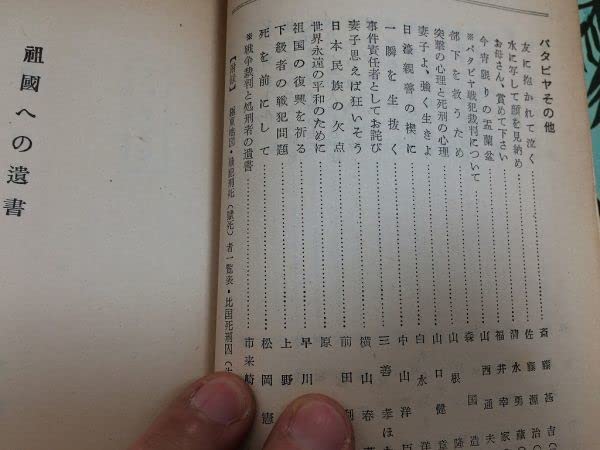 バタビヤその他
友に抱かれて泣く……斎藤甚吉
水に写して顔を見納め……佐藤源治
お母さん、賞めて下さい……清水勇蔵
今宵限りの盂蘭盆……福井幸家
※バタビヤ戦犯裁判について……山西通夫
部下を救うため……森国造
突撃の心理と死刑の心理……山根隆
妻子よ、強く生きよ……山口健
日濠親善の楔に……白水洋
一瞬を生抜く……中山洋臣
事件責任者としてお詫び……三善孝ほ
妻子思えば狂いそう……横山春
日本民族の欠点……前田利
世界永遠の平和のために……原
祖国の復興を祈る……早川
下級者の戦犯問題……上野
死を前にして……松岡憲
※戦争裁判と処刑者の遺書……市来崎
【附録】 極東地図・戦犯刑死（獄死）者一覧表・比国死刑囚
祖國への遺書